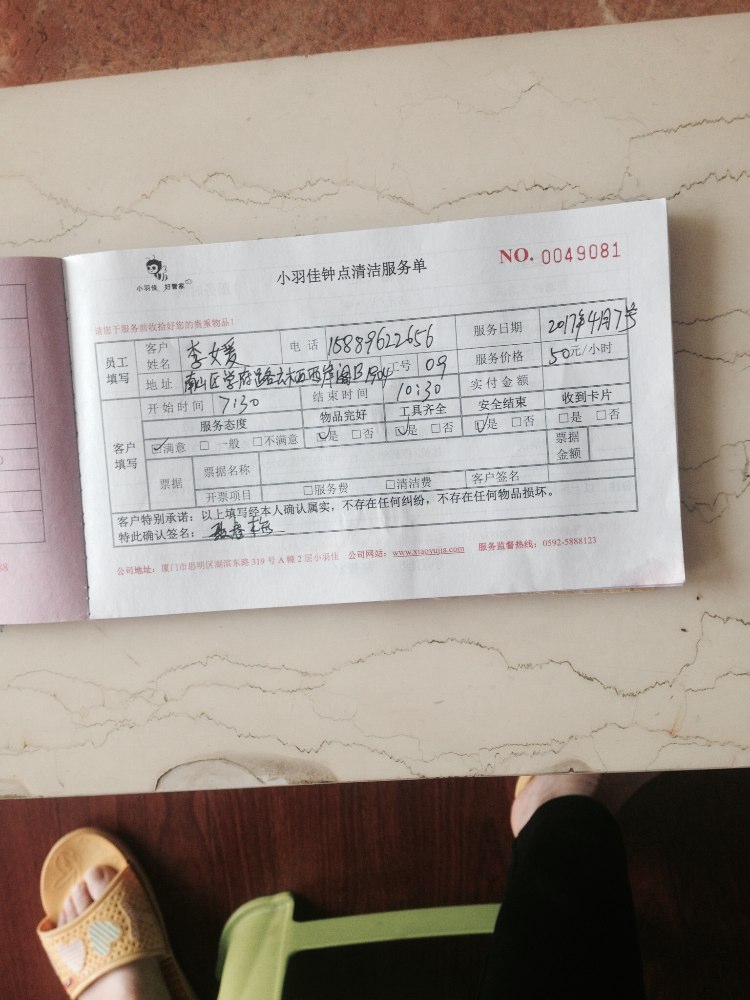 小羽佳 好管家
小羽佳钟点清洁服务单
NO. 0049081
请您于服务前收拾好您的贵重物品!
员工填写 客户姓名 李女爱 电话 15889622656 服务日期 2017年4月7号
地址 南山区学府路 西岸阁B1904 工号 09 服务价格 50元/小时
开始时间 7:30 结束时间 10:30 实付金额
客户填写 服务态度 物品完好 工具齐全 安全结束 收到卡片
☑满意 □一般 □不满意 ☑是 □否 ☑是 □否 ☑是 □否 □是 □否
票据 票据名称 票据金额
开票项目 □服务费 □清洁费 客户签名
客户特别承诺:以上填写经本人确认属实,不存在任何纠纷,不存在任何物品损坏。
特此确认签名:
公司地址:厦门市思明区湖滨东路 319 号 A 幢 2 层小羽佳 公司网站:www.xiaoyujia.com 服务监督热线:0592-5888123